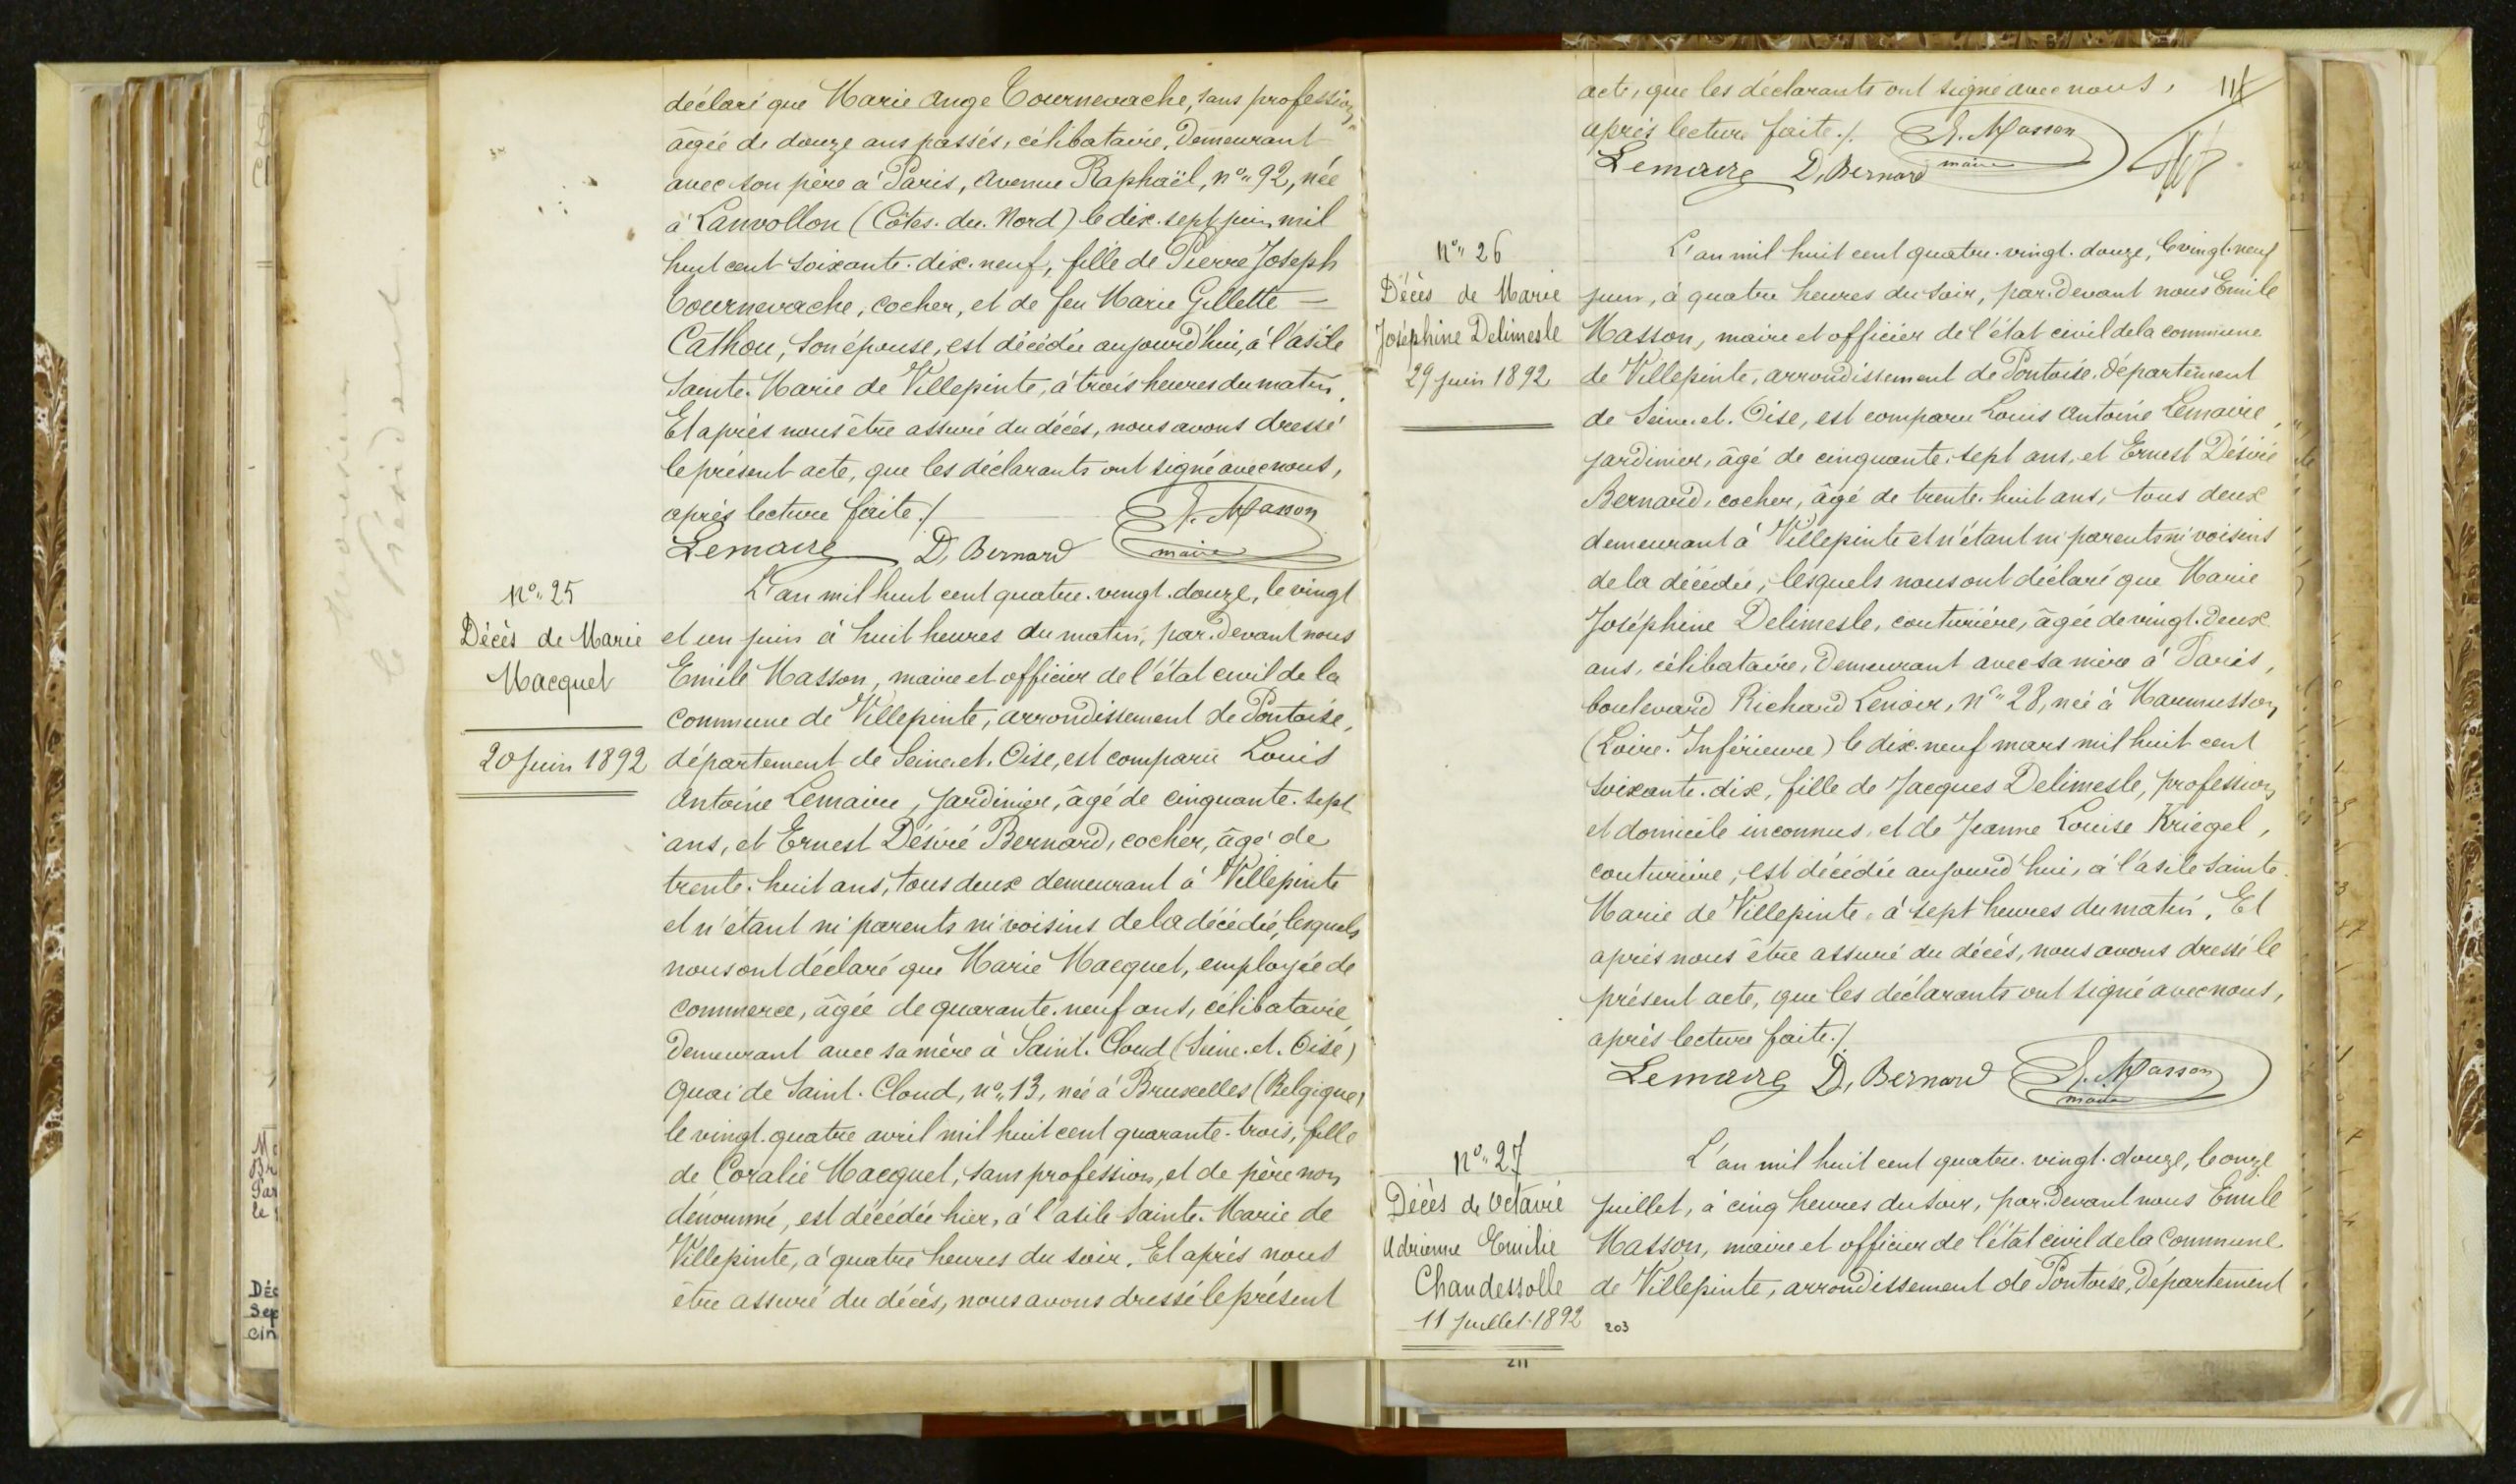 déclaré que Marie Ange Tournevache, sans profession,
âgée de douze ans passés, célibataire, demeurant
avec son père à Paris, Avenue Raphaël, n° 92, née
à Lanvollon (Côtes-du-Nord) le dix-sept juin mil
huit cent soixante-dix-neuf, fille de Pierre Joseph
Tournevache, cocher, et de feu Marie Gillette
Cathou, son épouse, est décédée aujourd'hui, à l'asile
Sainte-Marie de Villepinte, à trois heures du matin.
Et après nous être assuré du décès, nous avons dressé
le présent acte, que les déclarants ont signé avec nous,
après lecture faite ./.
E. Masson
maire
Lemaire D. Bernard
N° 25
Décès de Marie
Macquet
20 Juin 1892
L'an mil huit cent quatre-vingt-douze, le vingt
et un juin à huit heures du matin, par-devant nous
Emile Masson, maire et officier de l'état civil de la
commune de Villepinte, arrondissement de Pontoise,
département de Seine-et-Oise, est comparu Louis
Antoine Lemaire, jardinier, âgé de cinquante-sept
ans, et Ernest Désiré Bernard, cocher, âgé de
trente-huit ans, tous deux demeurant à Villepinte
et n'étant ni parents ni voisins de la décédée, lesquels
nous ont déclaré que Marie Macquet, employée de
commerce, âgée de quarante-neuf ans, célibataire,
demeurant avec sa mère à Saint-Cloud (Seine-et-Oise)
quai de Saint-Cloud, n° 13, née à Bruxelles (Belgique)
le vingt-quatre avril mil huit cent quarante-trois, fille
de Coralie Macquet, sans profession, et de père non
dénommé, est décédée hier, à l'asile Sainte-Marie de
Villepinte, à quatre heures du soir. Et après nous
être assuré du décès, nous avons dressé le présent
acte, que les déclarants ont signé avec nous,
après lecture faite ./. E. Masson
maire
Lemaire D. Bernard
N° 26
Décès de Marie
Joséphine Delimesle
29 Juin 1892
L'an mil huit cent quatre-vingt-douze, le vingt-neuf
juin, à quatre heures du soir, par-devant nous Emile
Masson, maire et officier de l'état civil de la commune
de Villepinte, arrondissement de Pontoise, département
de Seine-et-Oise, est comparu Louis Antoine Lemaire,
jardinier, âgé de cinquante-sept ans, et Ernest Désiré
Bernard, cocher, âgé de trente-huit ans, tous deux
demeurant à Villepinte et n'étant ni parents ni voisins
de la décédée, lesquels nous ont déclaré que Marie
Joséphine Delimesle, couturière, âgée de vingt-deux
ans, célibataire, demeurant avec sa mère à Paris,
boulevard Richard Lenoir, n° 28, née à Maumusson
(Loire-Inférieure) le dix-neuf mars mil huit cent
soixante-dix, fille de Jacques Delimesle, profession
et domicile inconnus, et de Jeanne Louise Kriegel,
couturière, est décédée aujourd'hui, à l'asile Sainte-
Marie de Villepinte, à sept heures du matin. Et
après nous être assuré du décès, nous avons dressé le
présent acte, que les déclarants ont signé avec nous,
après lecture faite ./.
Lemaire D. Bernard E. Masson
maire
N° 27
Décès de Octavie
Adrienne Emilie
Chandessolle
11 Juillet 1892
L'an mil huit cent quatre-vingt-douze, le onze
juillet, à cinq heures du soir, par-devant nous Emile
Masson, maire et officier de l'état civil de la commune
de Villepinte, arrondissement de Pontoise, département
203
211